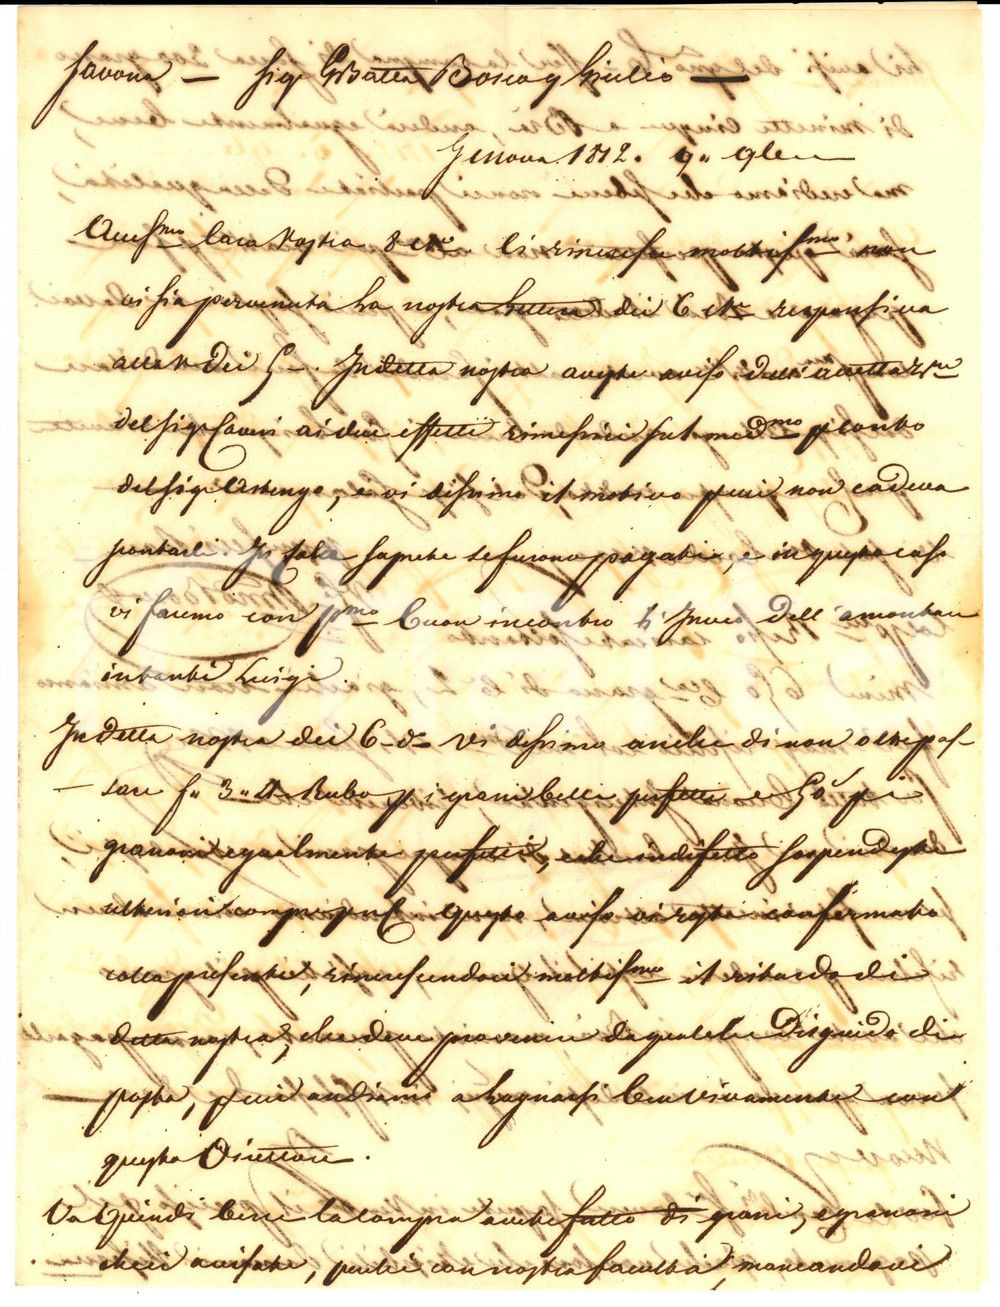 Savona — Sig. GBatta Bosco q Giulio —
Genova 1812. 9. 9bre
cara vostra 8 corr.e Ci rincresce moltiss.mo non
vi sia pervenuta la nostra lettera dei 6 corr.e responsiva
alla v. dei 5 -. In detta nostra avrete aviso dell'accettaz.ne
del Sig. ai due effetti rimessici sul med.mo p conto
del Sig. Astengo, e vi dissimo il motivo p cui non cadeva
In falta saprete se furono pagati, e in questo caso
vi faremo con p.mo buon incontro l'invio dell'amontare
in tanti Luigi.
In detta nostra dei 6 d.o vi dissimo anche di non oltrepas-
sare f. 3. 4 Rubo p i grani belli perfetti e 50 p i
granoni egualmente perfetti, e che in difetto sospendeste
ulteriori compre. Questo aviso vi resti confermato
colla presente, rincrescendoci moltiss.mo il ritardo di
detta nostra, che deve provenire da qualche Disguido di
posta, p cui andiamo a lagnarsi ben vivamente con
questo Direttore.
Va quindi bene la compra avete fatto di grani, e granoni
che ci avisate, perchè con nostra facoltà, mancandovi